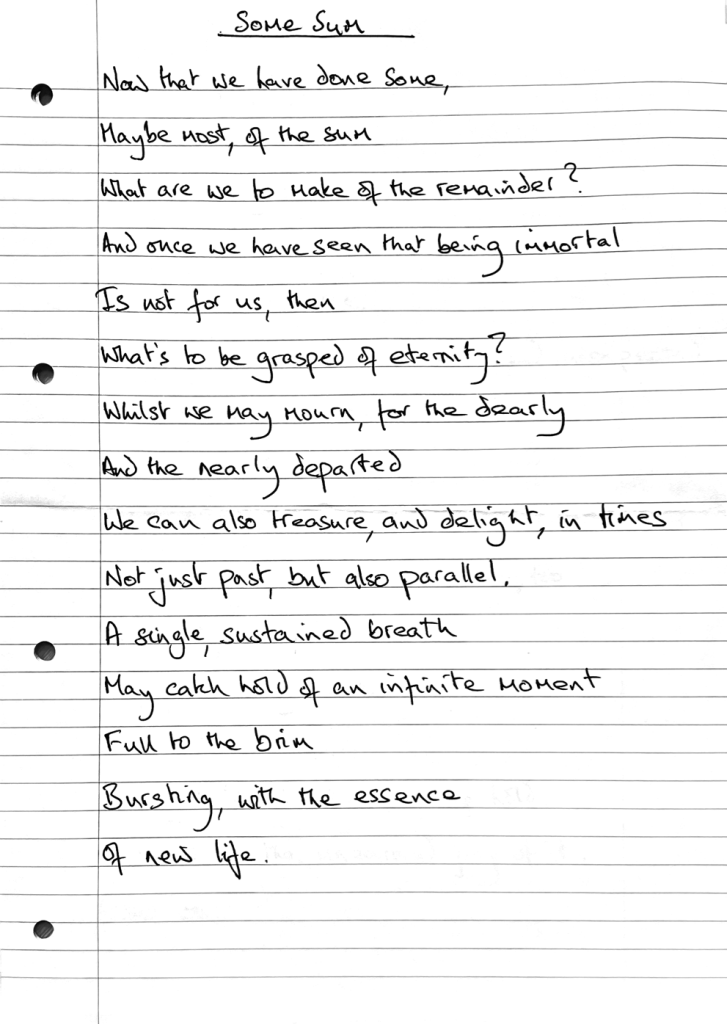 Some Sum
Now that we have done some,
Maybe most, of the sum
What are we to make of the remainder?
And once we have seen that being immortal
Is not for us, then
What's to be grasped of eternity?
Whilst we may mourn, for the dearly
And the nearly departed
We can also treasure, and delight, in times
Not just past, but also parallel.
A single, sustained breath
May catch hold of an infinite moment
Full to the brim
Bursting, with the essence
Of new life.